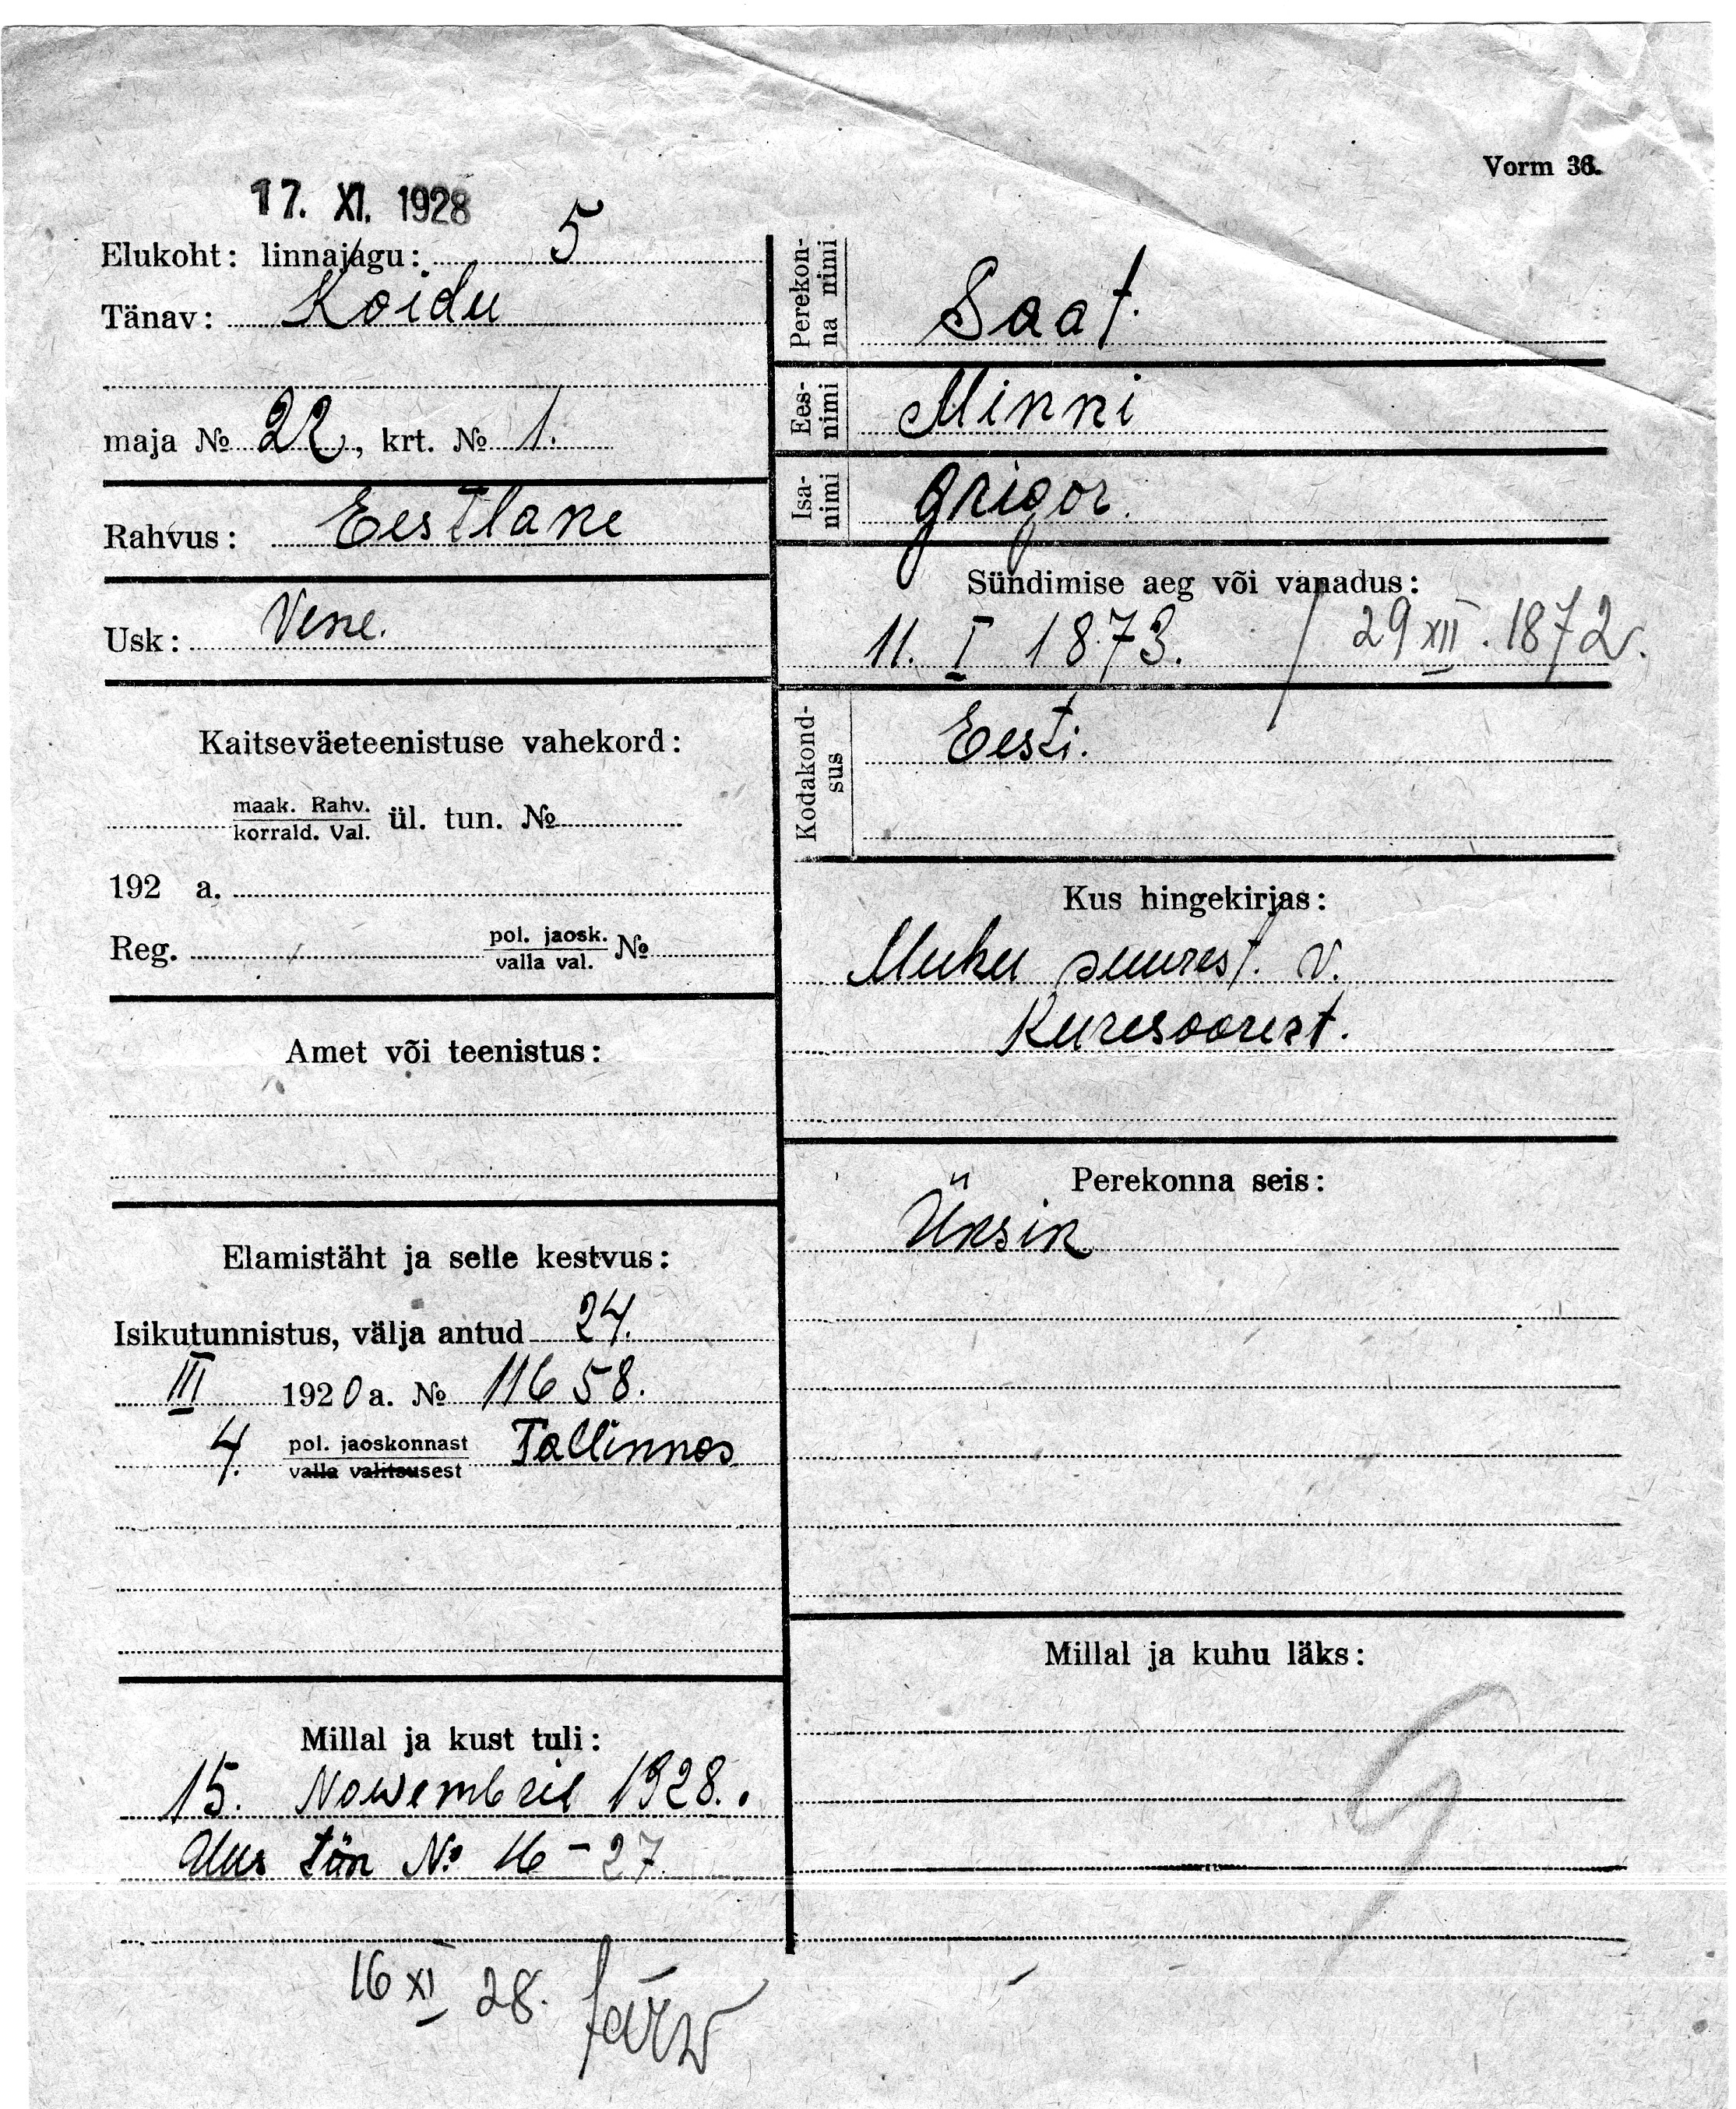 Vorm 36.
17. XI. 1928
Elukoht: linnajagu: 5
Tänav: Koidu
maja № 22, krt. № 1.
Rahvus: Eestlane
Usk: Vene.
Kaitseväeteenistuse vahekord:
maak. Rahv.
korrald. Val. ül. tun. №
192 a.
Reg. pol. jaosk.
valla val. №
Amet või teenistus:
Elamistäht ja selle kestvus:
Isikutunnistus, välja antud 24.
III 1920 a. № 11658.
4. pol. jaoskonnast Tallinnas
valla valitsusest
Millal ja kust tuli:
15. Nowembril 1928.
Uus tän № 16-27.
16 XI 28.
Perekonna nimi
Saat.
Eesnimi
Minni
Isanimi
Grigor.
Sündimise aeg või vanadus:
11. I 1873. / 29 XII. 1872.
Kodakondsus
Eesti.
Kus hingekirjas:
Muhu suurest. v.
Kuresoorest.
Perekonna seis:
Üksik
Millal ja kuhu läks: